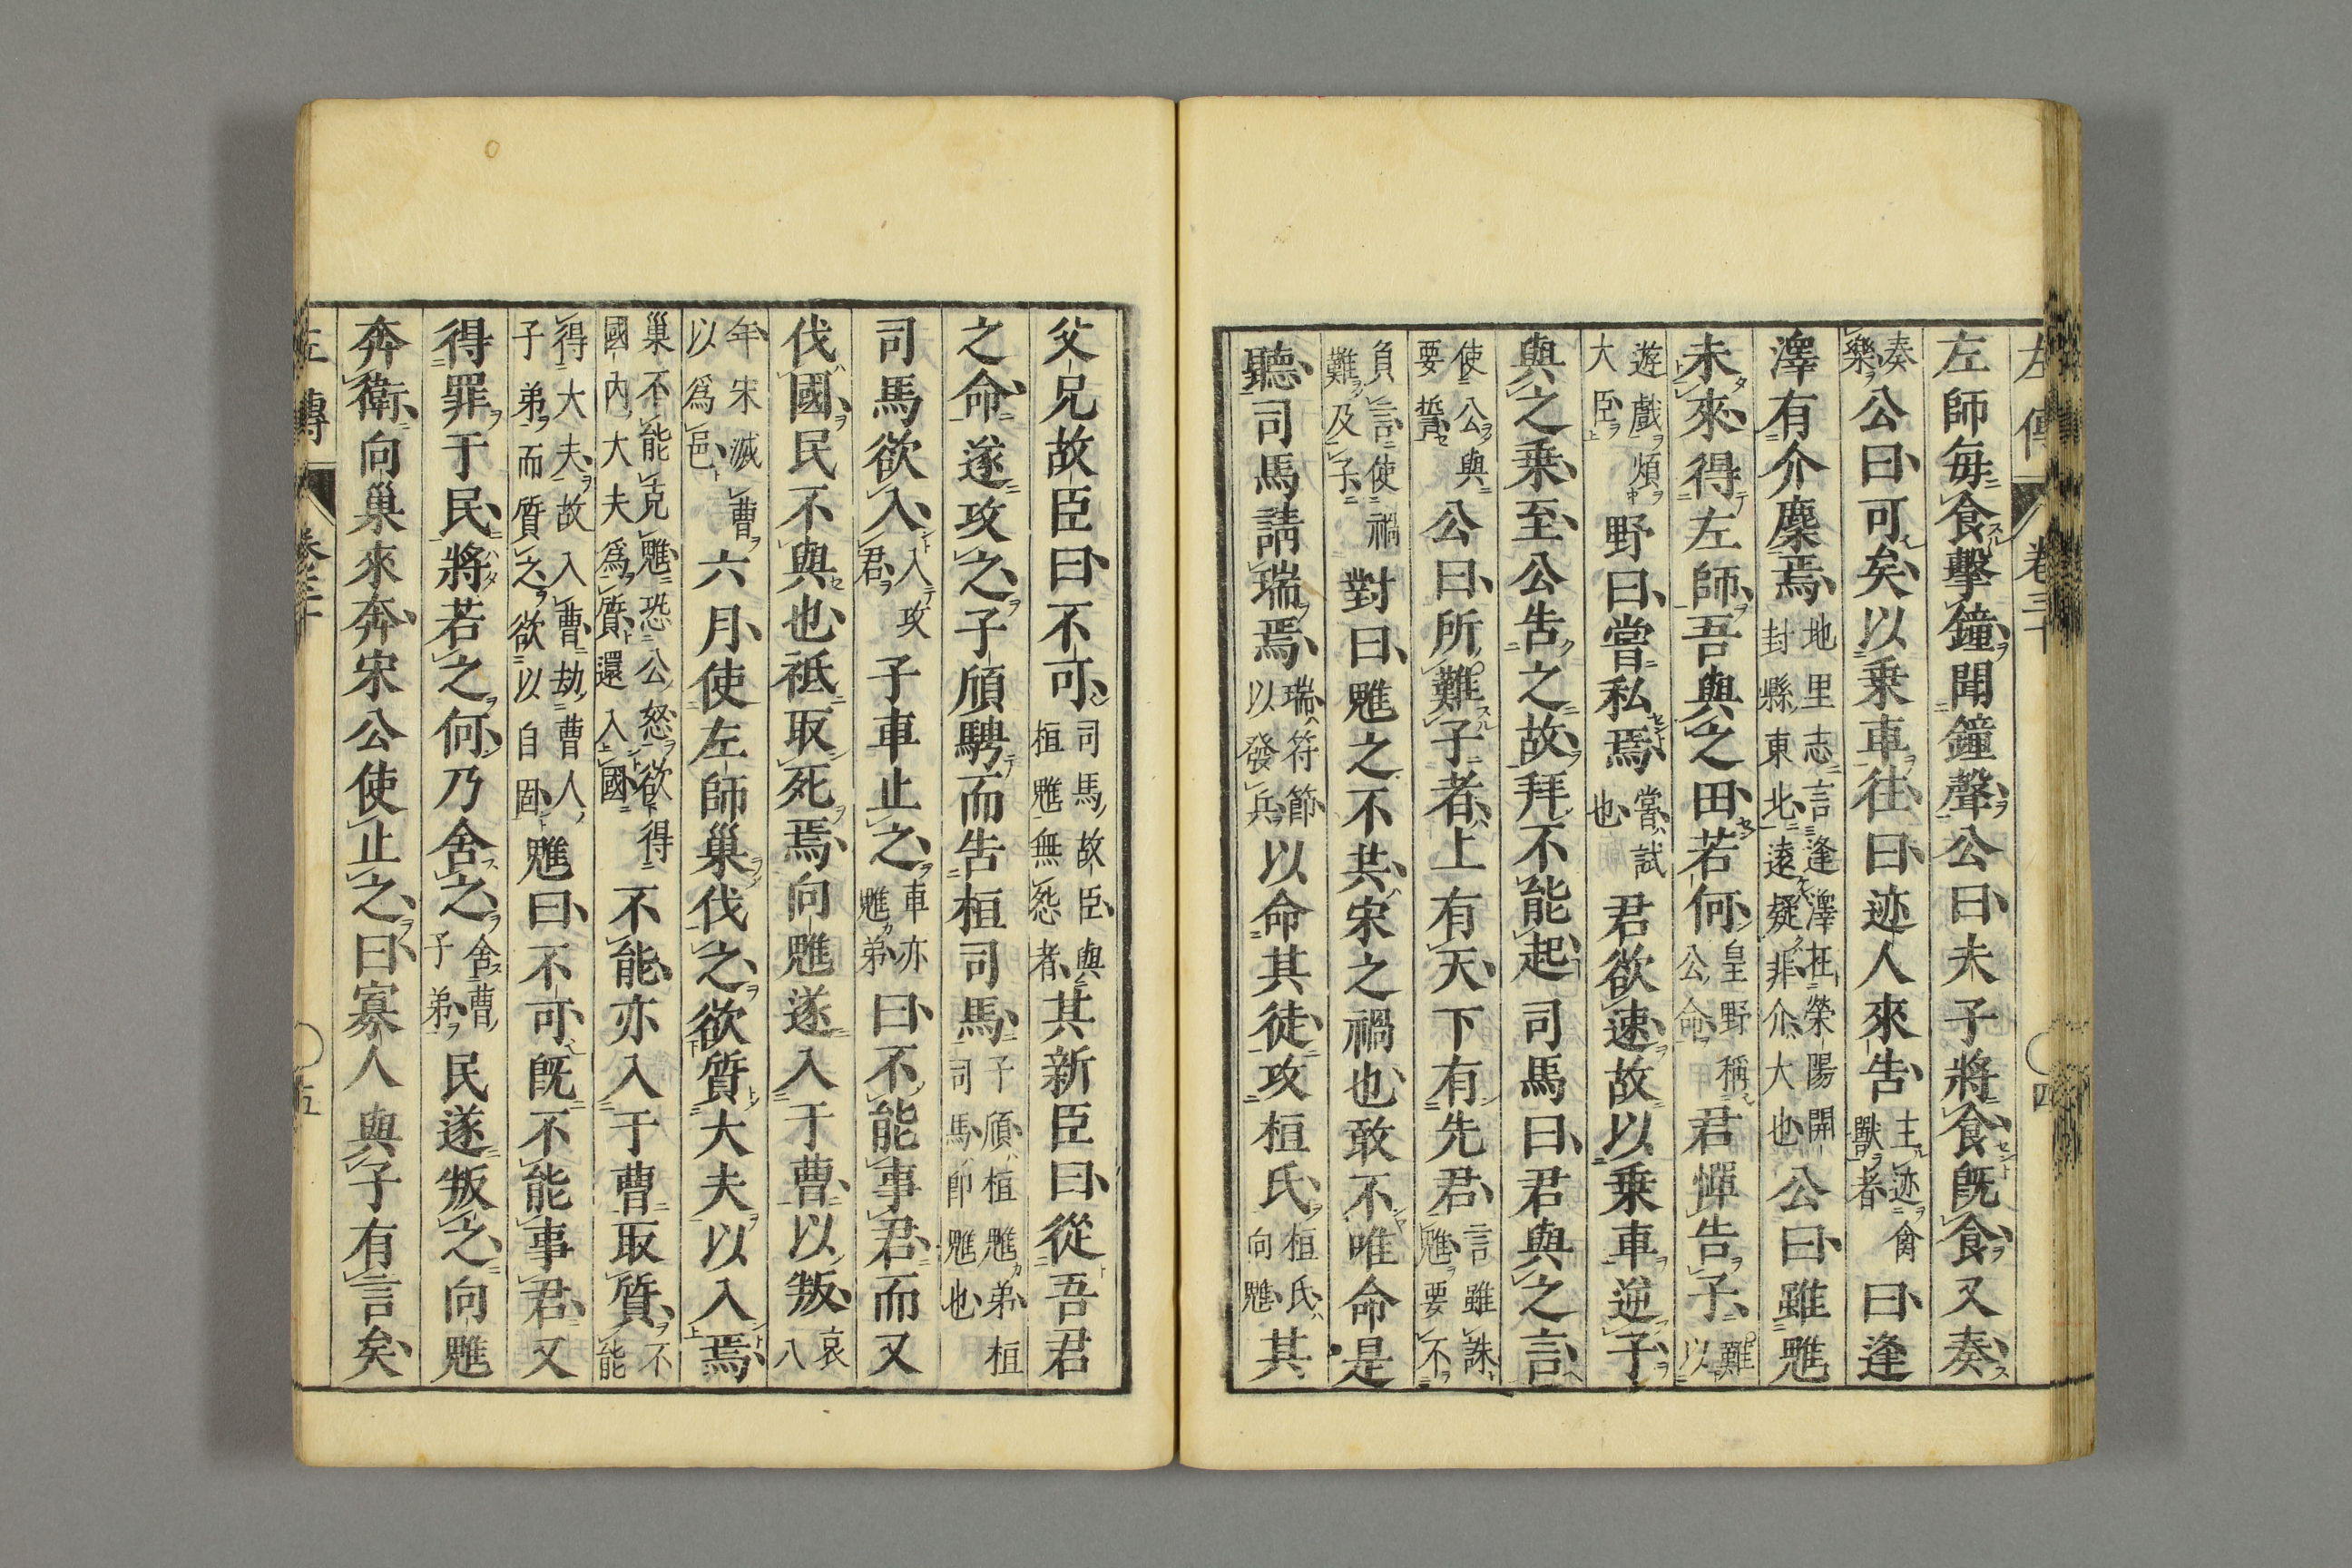 左傳 卷三十 四
左師每食擊鐘聞鐘聲公曰夫子將食既食又奏
奏樂公曰可矣以乗車往曰迹人來告主迹禽獸者曰逢
澤有介麋焉地里志言逢澤在滎陽開封縣東北遠疑非介大也公曰雖魋
未來得左師吾與之田若何皇野稱公命君憚告子難以
遊戲煩大臣野曰嘗私焉嘗試也君欲速故以乗車逆子
與之乗至公告之故拜不能起司馬曰君與之言
使公與要誓公曰所難子者上有天下有先君言雖誅魋要不
負言使禍難及子對曰魋之不共宋之禍也敢不唯命是
聽司馬請瑞焉瑞符節以發兵以命其徒攻桓氏桓氏向魋其
父兄故臣曰不可司馬故臣與桓魋無怨者其新臣曰從吾君
之命遂攻之子頎騁而告桓司馬子頎桓魋弟桓司馬即魋也
司馬欲入入攻君子車止之車亦魋弟曰不能事君而又
伐國民不與也祗取死焉向魋遂入于曹以叛哀八
年宋滅曹以爲邑六月使左師巢伐之欲質大夫以入焉
巢不能克魋恐公怒欲得國内大夫爲質還入國不能亦入于曹取質不能
得大夫故入曹劫曹人子弟而質之欲以自固魋曰不可既不能事君又
得罪于民將若之何乃舍之舍曹子弟民遂叛之向魋
奔衛向巢來奔宋公使止之曰寡人與子有言矣
左傳 卷三十 五